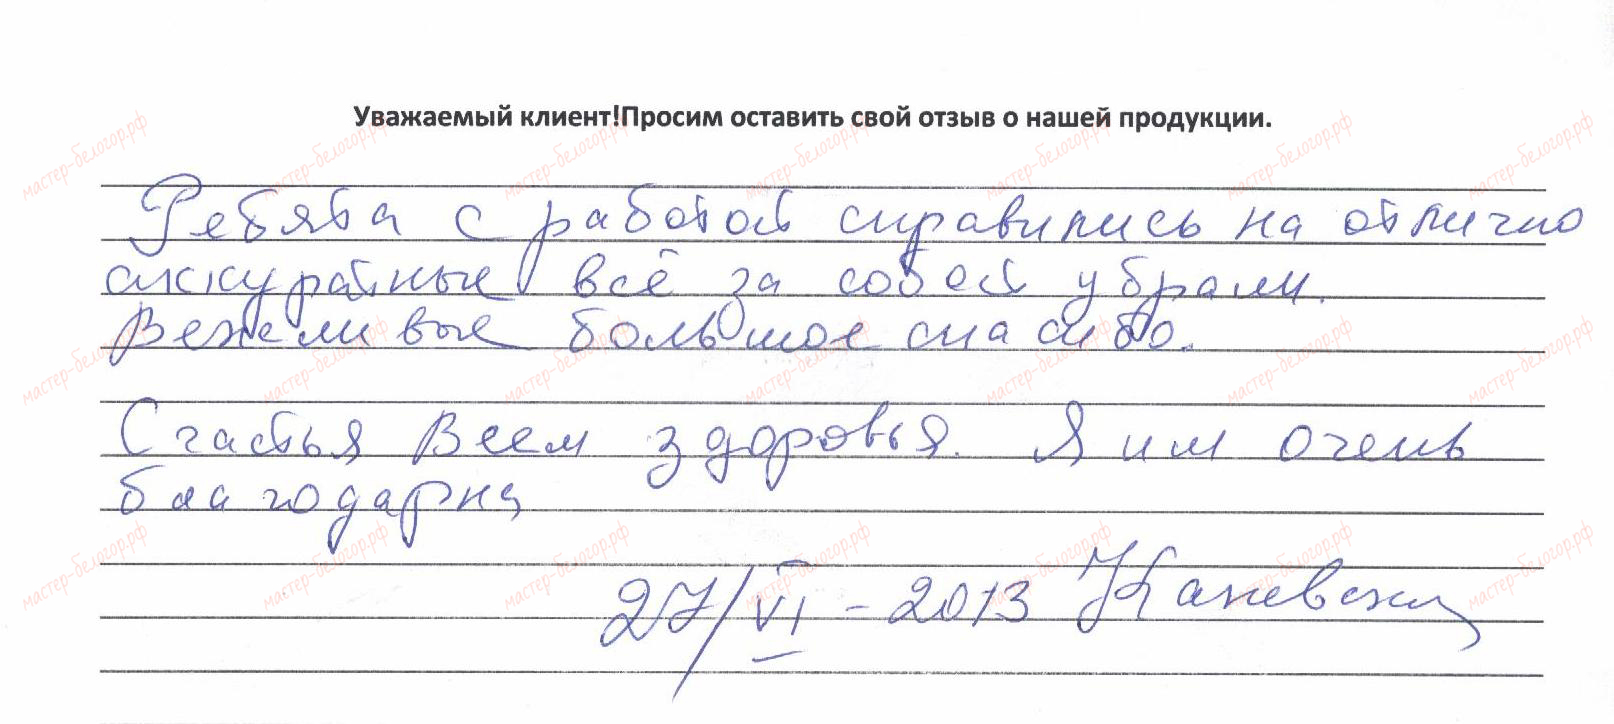 Уважаемый клиент!Просим оставить свой отзыв о нашей продукции.
Ребята с работой справились на отлично
аккуратные всё за собой убрали.
Вежливые большое спасибо.
Счастья Всем здоровья. Я им очень
благодарна
27/VI-2013
мастер-белогор.рф